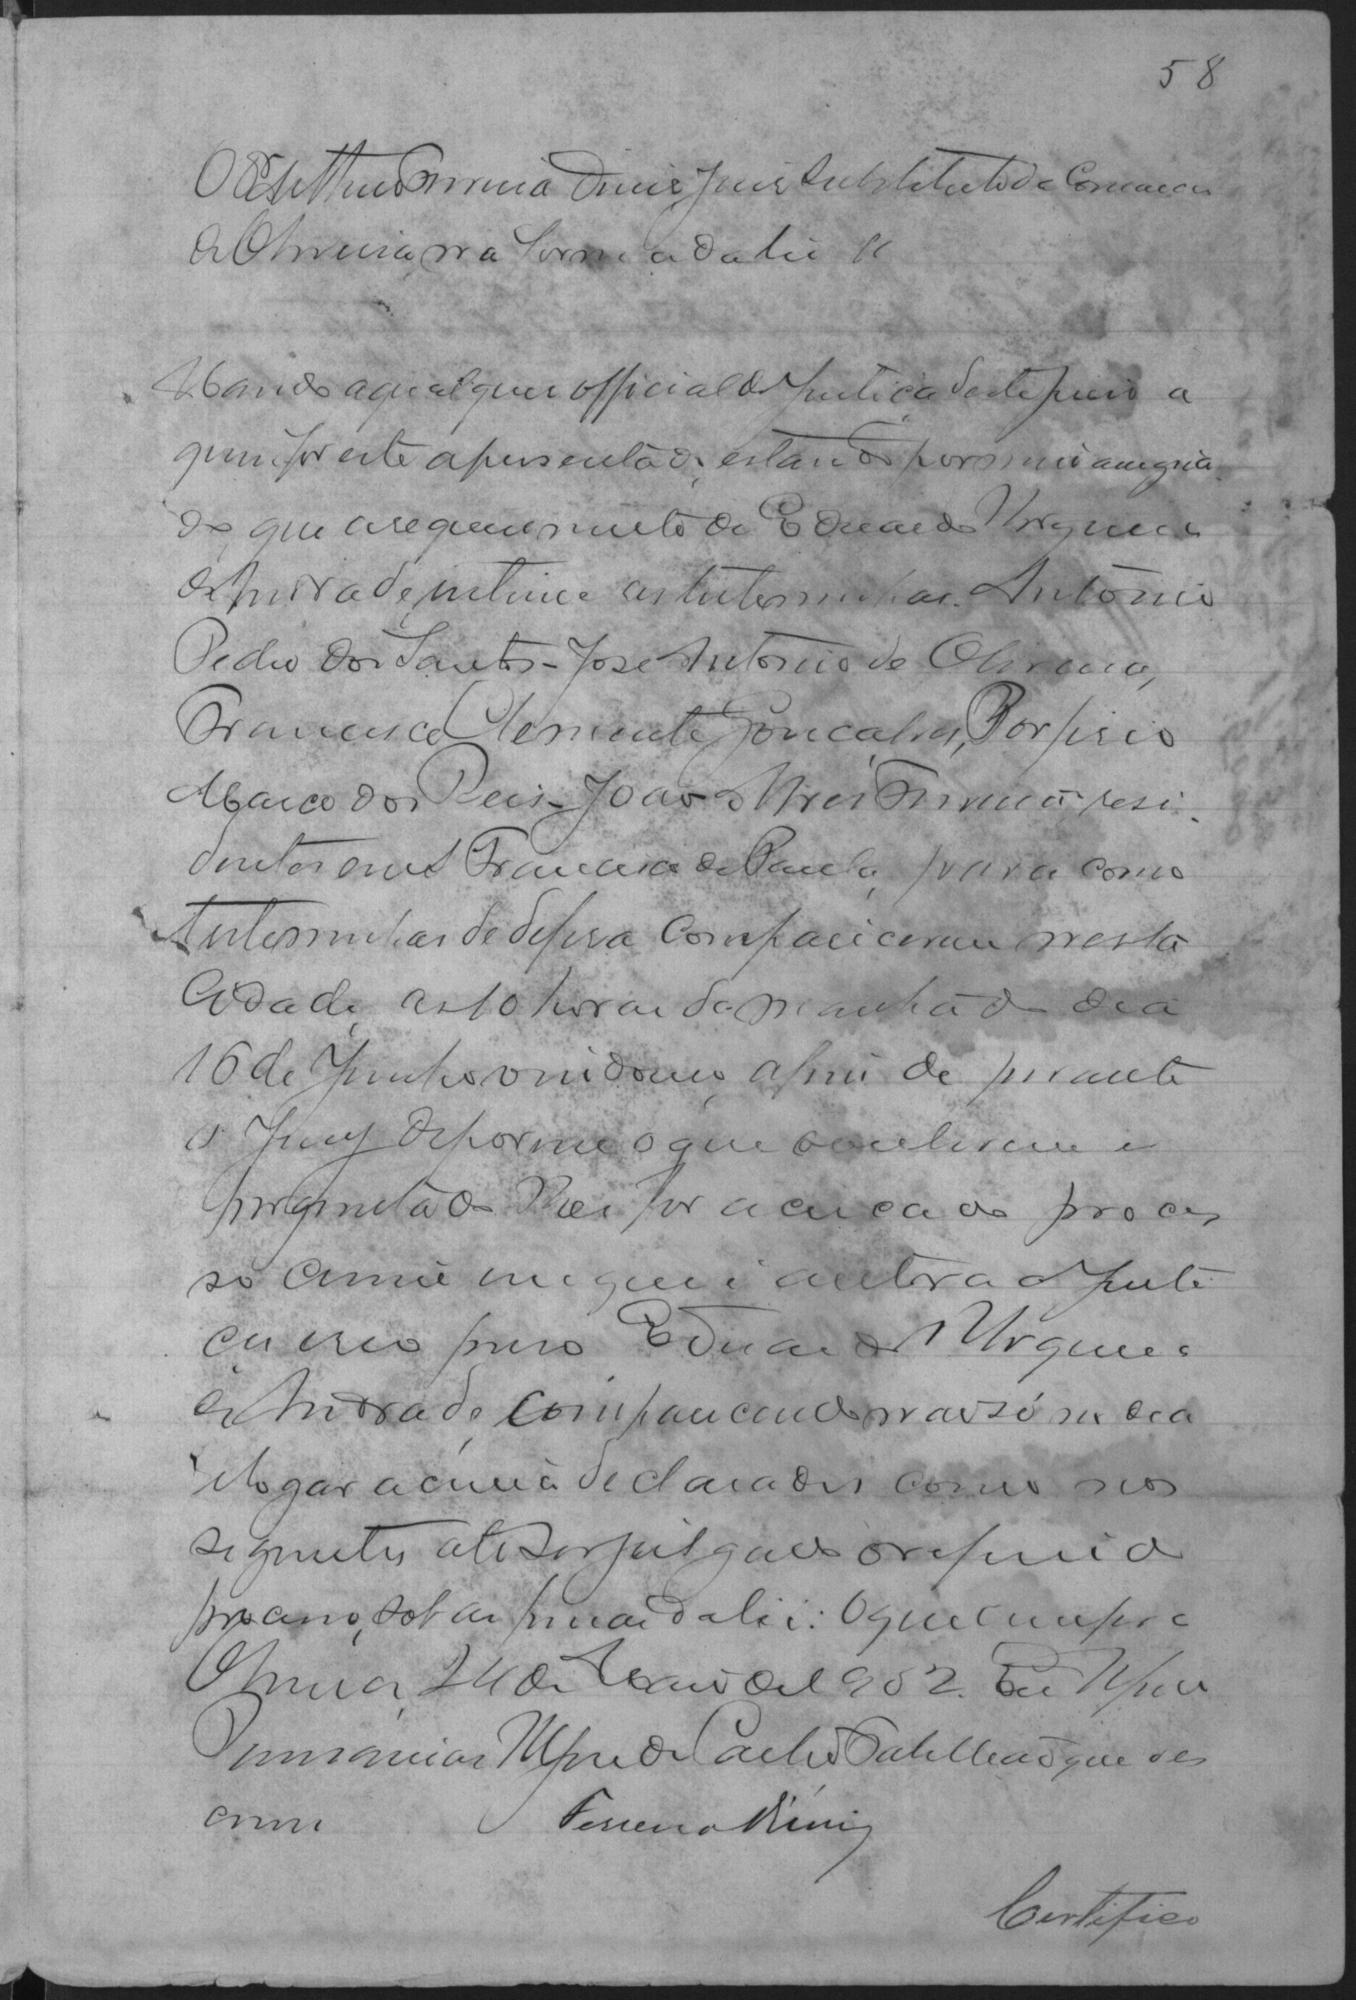 58
Ferreira Diniz Juiz Substituto da Comarca
de Oliveira, na forma da lei //
Mando a qualquer official de Justiça deste juizo a
quem for este apresentado, estando por mim assigna
do, que a requerimento de Eduardo
de Andrade, intime as testemunhas. Antonio
Pedro dos Santos - José Antonio de Oliveira,
Francisco Clemente Gonçalves, Porfirio
Marco dos Reis - João Ferreira resi
dentes em S. Francisco de Paula, para como
testemunhas de defesa comparecerem nesta
Cidade, as 10 horas da manhã do dia
16 de Junho vindouro, afim de perante
o Jury deporem o que souberem e
perguntado lhes for acerca do proces
so crime em que é autora a Justi
ça e reo preso Eduardo
de Andrade, comparecendo não só no dia
e logar acima declarados como nos
seguintes até ser julgado o referido
processo, sob as penas da lei: O que cumpra
Oliveira, 24 de Maio de 1902. Eu
de Castro Tabellião que es
crevi Ferreira Diniz
Certifico